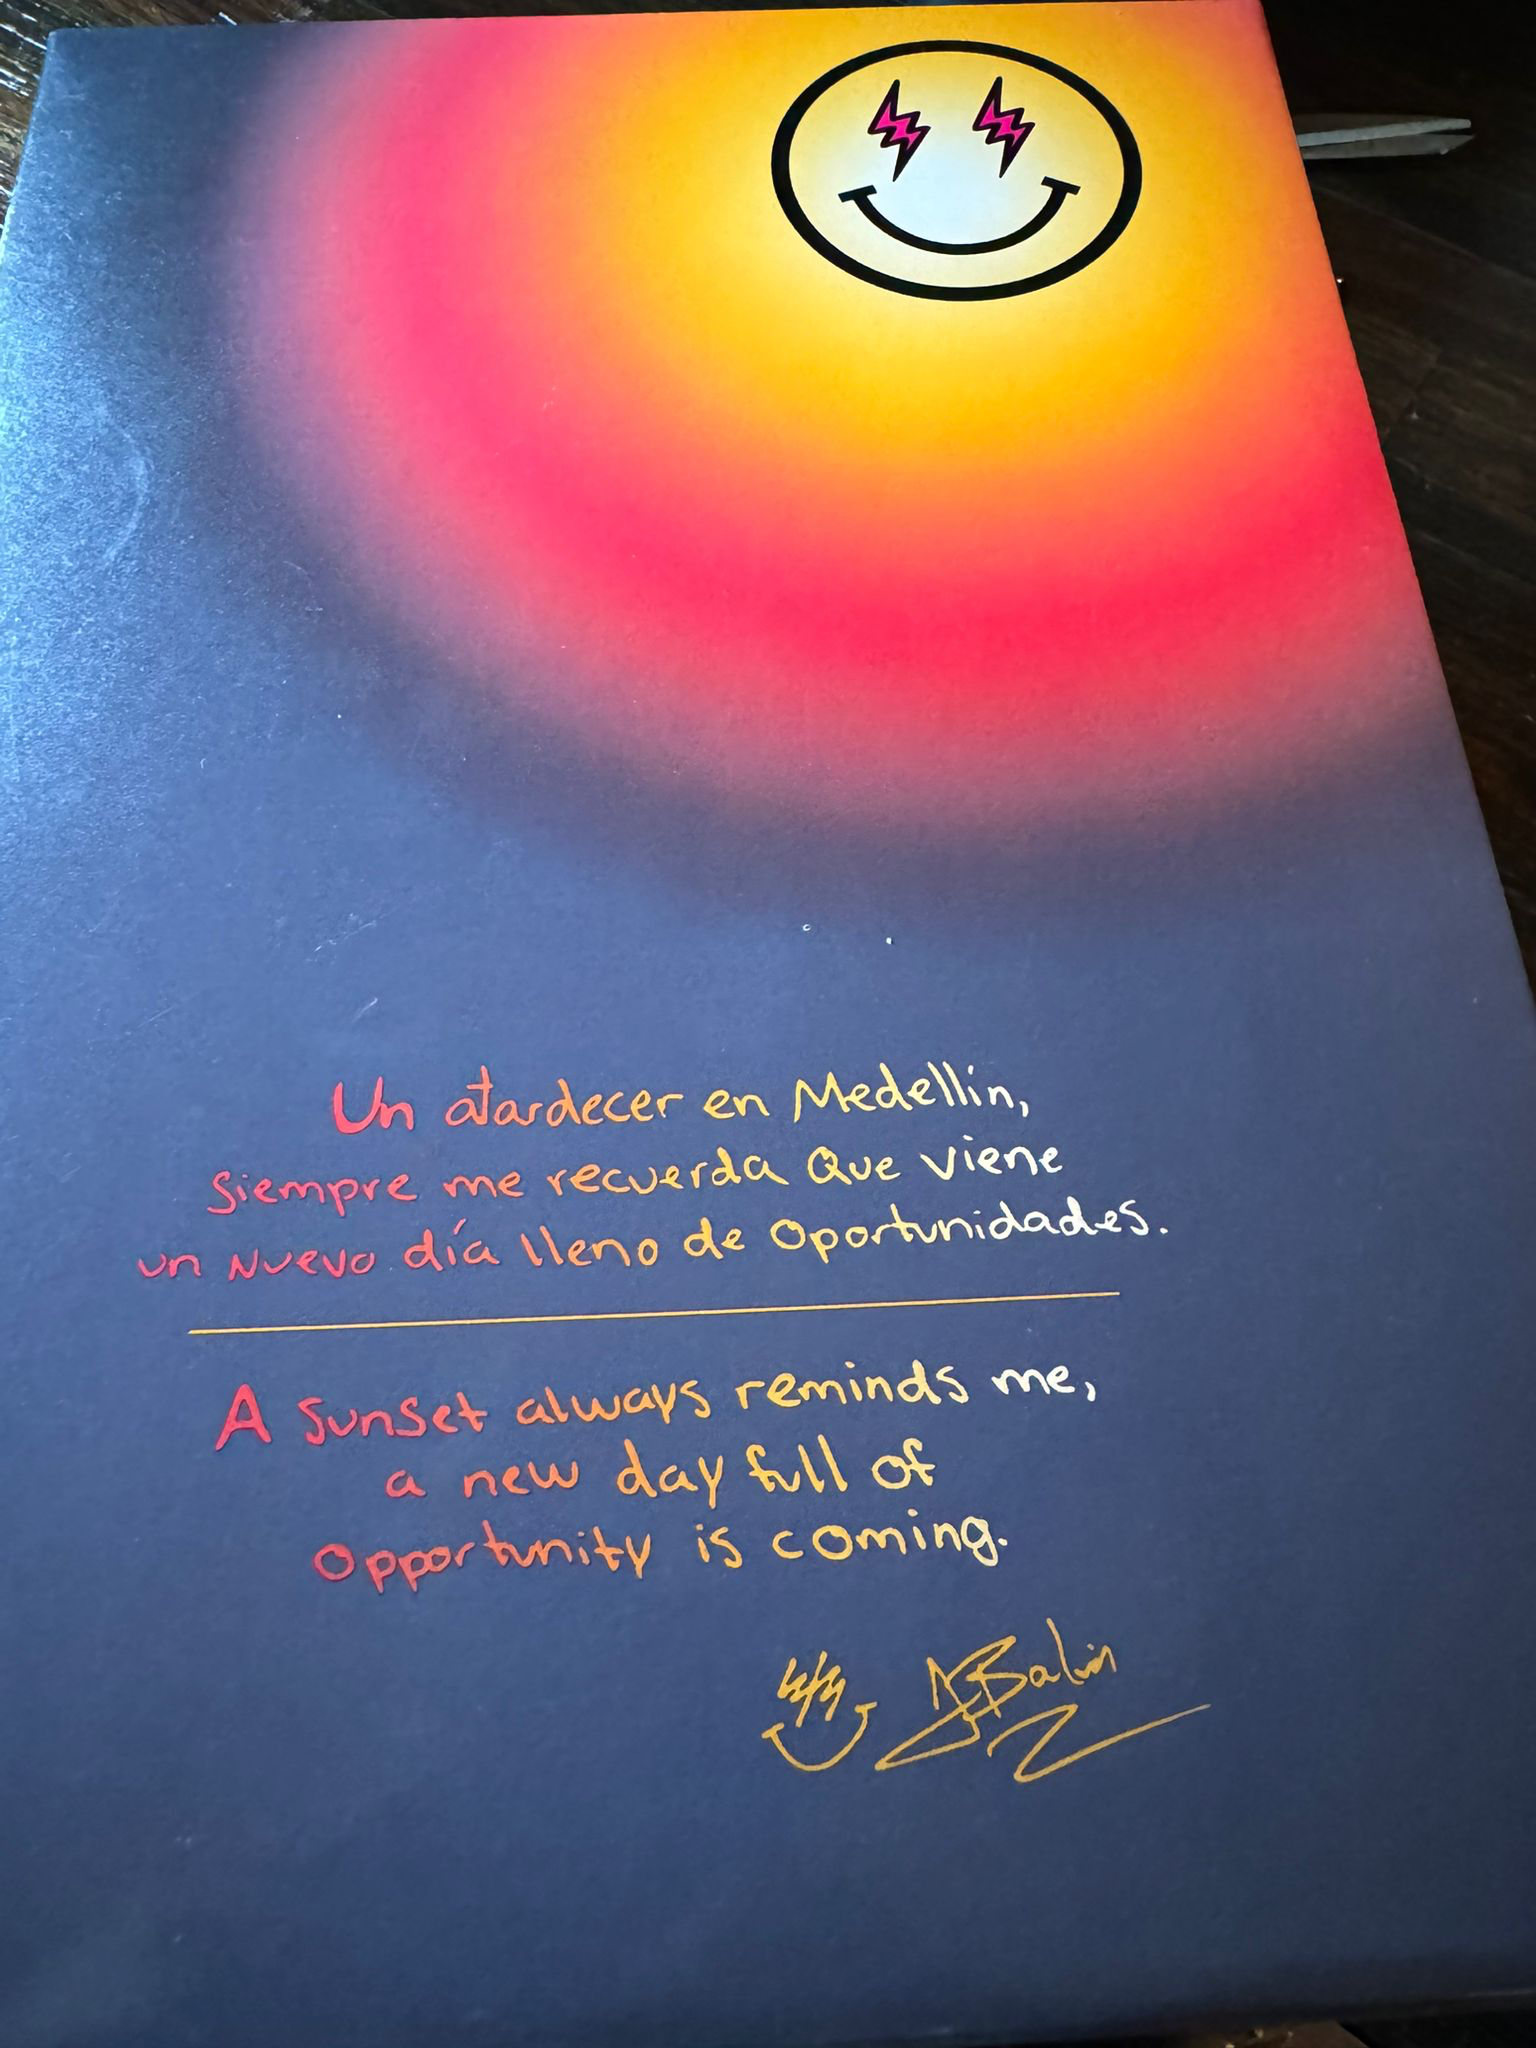 Un atardecer en Medellín,
siempre me recuerda Que viene
un Nuevo día lleno de Oportunidades.
A sunset always reminds me,
a new day full of
Opportunity is coming.
JBalvin